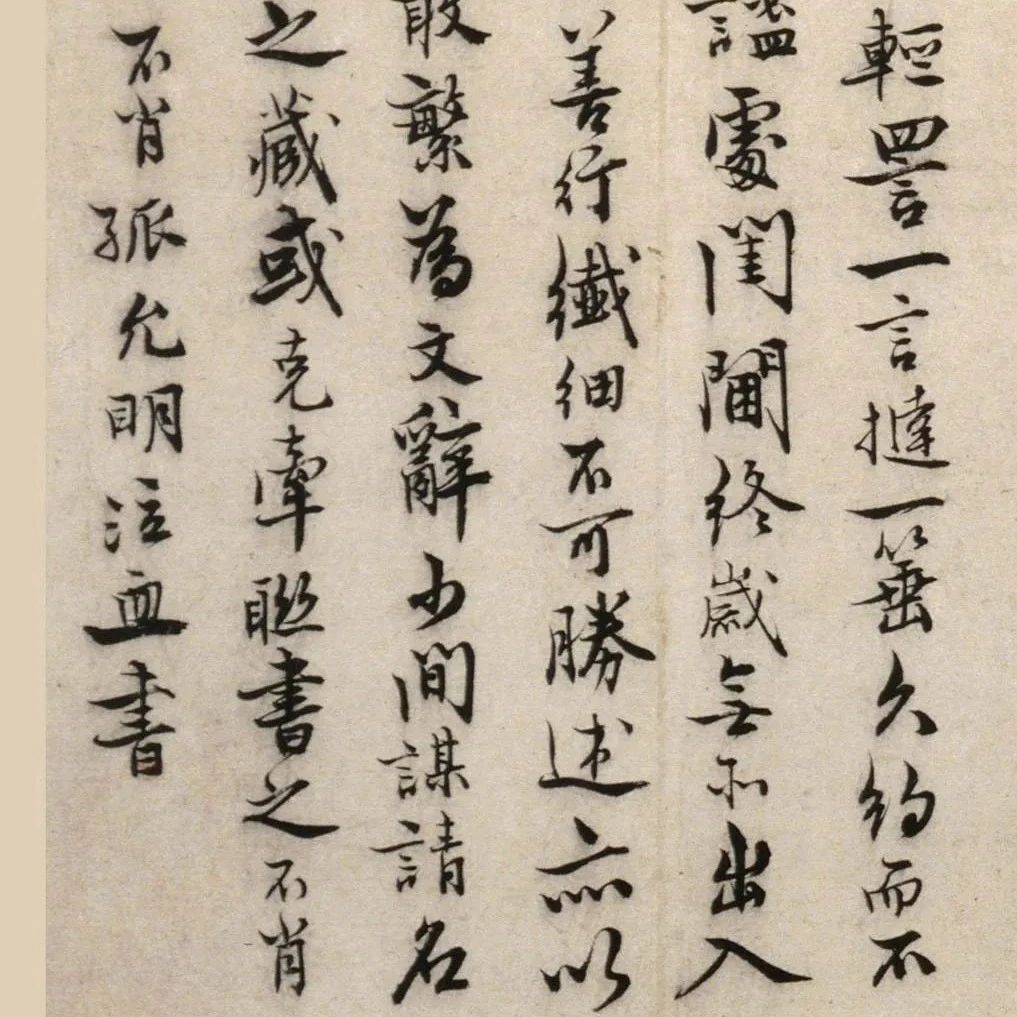 輕詈一言撻一箠久約而不
謐處閨闈終歲無所出入
善行纖細不可勝述亦以
敢繁為文辭少間謀請名
之藏或克牽聯書之不肖
不肖孤允明泣血書